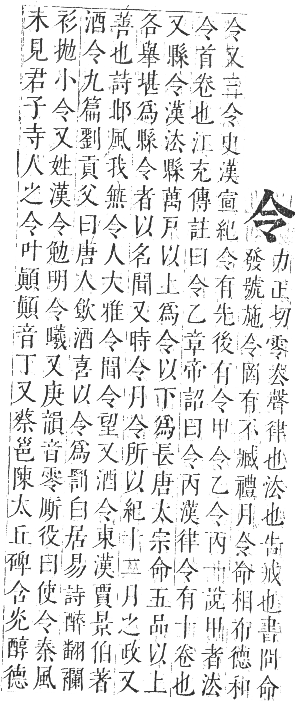 令
力正切零去聲律也法也告戒也書冏命
發號施令罔有不臧禮月令命相布德和
令又三令史漢宣紀令有先後有令甲令乙令丙一說甲者法
令首卷也江充傳註曰令乙章帝詔曰令丙漢律令有十卷也
又縣令漢法縣萬戶以上爲令以下爲長唐太宗命五品以上
各舉堪爲縣令者以名聞又時令月令所以紀十二月之政又
善也詩邶風我無令人大雅令聞令望又酒令東漢賈景伯著
酒令九篇劉貢父曰唐人飲酒喜以令爲罰白居易詩醉翻襴
衫拋小令又姓漢令勉明令曦又庚韻音零廝役曰使令秦風
未見君子寺人之令叶顛顛音丁又蔡邕陳太丘碑含炎醇德